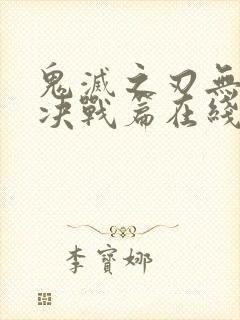 鬼滅之刃無
決戰篇在綫
李寶娜